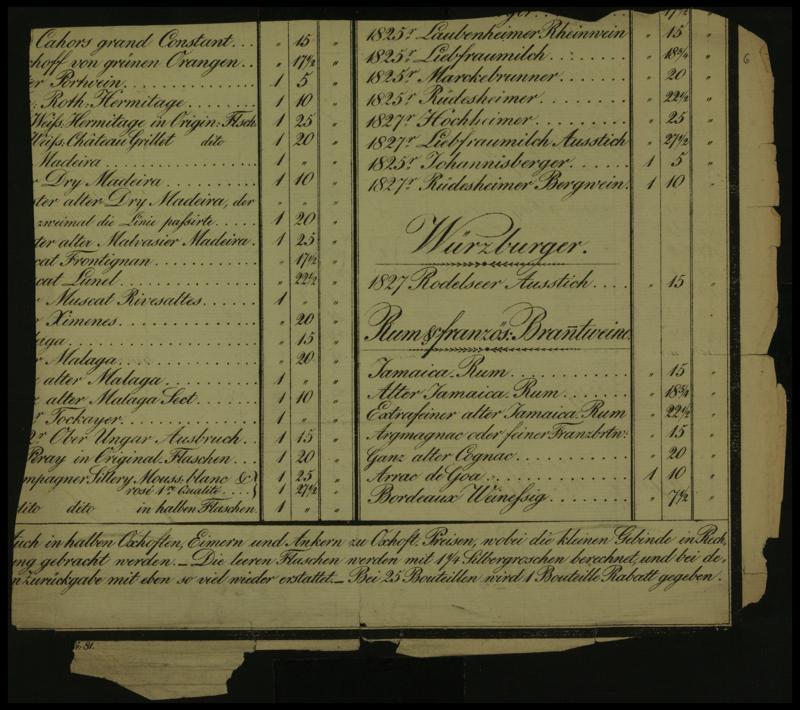 Cahors grand Constant . . . „ 15 „
hoff von grünen Orangen . . „ 17½ „
er Portwein . . . 1 5 „
Roth: Hermitage . . . 1 10 „
Weiß. Hermitage in Origin: Flsch 1 25 „
Weiß. Château Grillet dito 1 20 „
Madeira . . . 1 „ „
r Dry Madeira . . . 1 10 „
ter alter Dry Madeira, der „ „ „
zweimal die Linie paßirte . . . 1 20 „
ter alter Malvasier Madeira . 1 25 „
cat Frontignan . . . „ 17½ „
cat Lünel . . . „ 22½ „
r Muscat Rivesaltes . . . 1 „ „
r Ximenes . . . „ 20 „
laga . . . „ 15 „
r Malaga . . . „ 20 „
alter Malaga . . . 1 „ „
alter Malaga Sect . . . 1 10 „
r Tockayer . . . 1 „ „
2r Ober Ungar Ausbruch . . . 1 15 „
Peray in Original Flaschen . . . 1 20 „
mpagner Sillery Mouss: blanc & } 1 25 „
rosé 1re Qualité . . . } 1 27½ „
dito dito in halben Flaschen 1 „ „
17½ „
1825r Laubenheimer Rheinwein „ 15 „
1825r Liebfraumilch . . . „ 18¾ „
1825r Marckebrunner . . . „ 20 „
1825r Rüdesheimer . . . „ 22½ „
1827r Hochheimer . . . „ 25 „
1827r Liebfraumilch Ausstich „ 27½ „
1825r Johannisberger . . . 1 5 „
1827r Rüdesheimer Bergwein . 1 10 „
Würzburger.
1827 Rodelseer Ausstich . . . „ 15 „
Rum & französ: Branntweine
Jamaica Rum . . . „ 15 „
Alter Jamaica Rum . . . „ 18¾ „
Extrafeiner alter Jamaica Rum „ 22½ „
Arymagnac oder feiner Franzbrtw: „ 15 „
Ganz alter Cognac . . . „ 20 „
Arrac de Goa . . . 1 10 „
Bordeaux Weinessig . . . „ 7½ „
uch in halben Oxhoften, Eimern und Ankern zu Oxhoft Preisen, wobei die kleinen Gebinde in Rech,
ng gebracht werden. — Die leeren Flaschen werden mit 1¼ Silbergroschen berechnet, und bei de,
n zurückgabe mit eben so viel wieder erstattet. — Bei 25 Bouteillen wird 1 Bouteille Rabatt gegeben.
31.
6